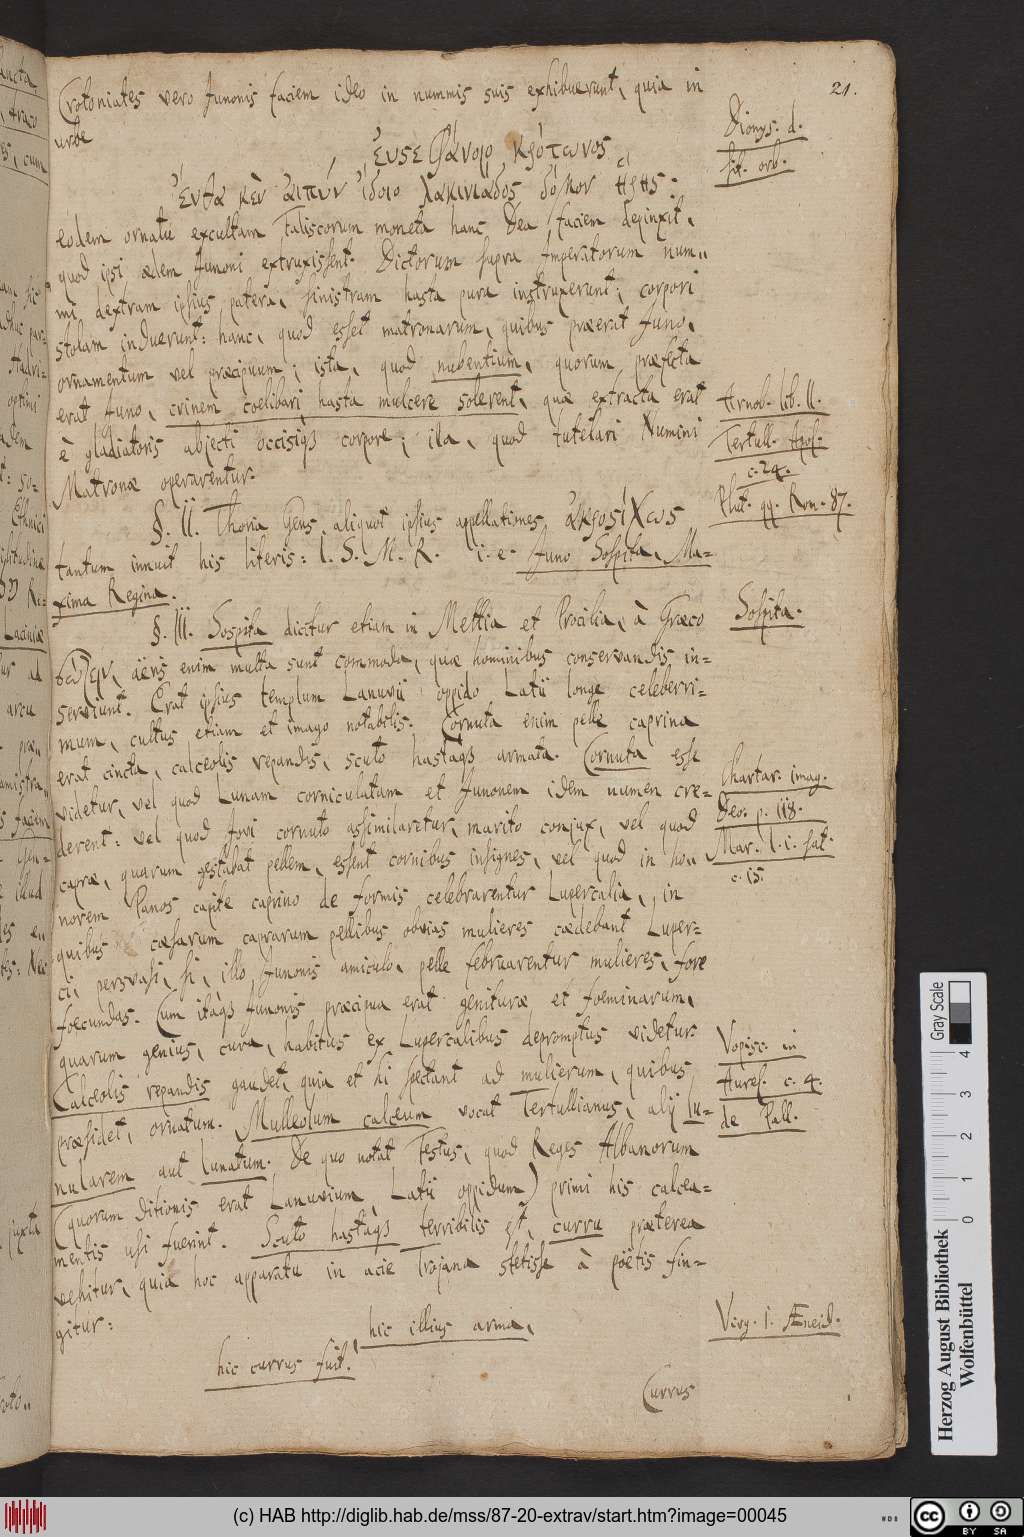 21.
Crotoniates vero Junonis faciem ideo in nummis suis exhibuerunt, quia in
urbe
Dionys. d.
sit. orb.
ἐυσεφάνοιο κρότωνος
Ἔνθα κὲν ἀιπὺν ἴδοιο λακινιαδος δόμον ἥρης:
eodem ornatu excultam Faliscorum moneta hanc Dea faciem depinxit,
quod ipsi ædem Junoni extruxissent. Dictorum supra Imperatorum num„
mi, dextram ipsius patera, sinistram hasta pura instruxerunt; corpori
stolam induerunt: hanc, quod esset matronarum, quibus præerat Juno,
ornamentum vel præcipuum; ista, quod nubentium, quorum præfecta
erat Juno, crinem coelibari hasta mulcere solerent, quæ extracta erat
è gladiatoris abjecti occisiqs corpore; illa, quod tutelari Numini
Matronæ operarentur.
Arnob. lib. II.
Tertull. Apol.
c. 24.
Plut. qq. Rom. 87.
§. II. Thoria Gens aliquot ipsius appellationes, ἀκροσίχως
tantum innuit his literis: I. S. M. R. i. e. Juno Sospita, Ma=
xima Regina.
§. III. Sospita dicitur etiam in Mettia et Procilia, à Græco
Sospita.
σώζειν, aëris enim multa sunt commoda, quæ hominibus conservandis in=
serviunt. Erat ipsius templum Lanuvii oppido Latii longe celeberri=
mum, cultus etiam et imago notabilis. Cornuta enim pelle caprina
erat cincta, calceolis repandis, scuto hastaqs armata. Cornuta esse
videtur, vel quod Lunam corniculatam et Junonem idem numen cre=
derent: vel quod Jovi cornuto assimilaretur, marito conjux, vel quod
capræ, quarum gestabat pellem, essent cornibus insignes, vel quod in ho„
norem Panos capite caprino de formis celebrarentur Lupercalia, in
quibus cæsarum caprarum pellibus obvias mulieres cædebant Luper=
ci, persvasi, si, illo Junonis amiculo, pelle februarentur mulieres, fore
foecundas. Cum itaqs Junonis præcipua erat genituræ et foeminarum,
quarum genius, cura, habitus ex Lupercalibus depromptus videtur
Chartar. imag.
Deo. p. 118.
Mar. l. i. sat.
c. 15.
Calceolis repandis gaudet, quia et hi spectant ad mulierum, quibus
præsidet, ornatum. Mulleolum calceum vocat Tertullianus, alij lu=
nularem aut lunatum. De quo notat Festus, quod Reges Albanorum
(quorum ditionis erat Lanuvium Latii oppidum) primi his calcea=
mentis usi fuerint. Scuto hastaqs terribilis est, curru præterea
vehitur, quia hoc apparatu in acie Trojana stetisse à poëtis fin=
gitur:
Vopisc. in
Aurel. c. 4.
de Pall.
hic illius arma,
hic currus fuit.
Virg. I. Æneid.
Currus
Gray Scale
0 1 2 3 4
Herzog August Bibliothek
Wolfenbüttel
(c) HAB http://diglib.hab.de/mss/87-20-extrav/start.htm?image=00045
cc BY SA